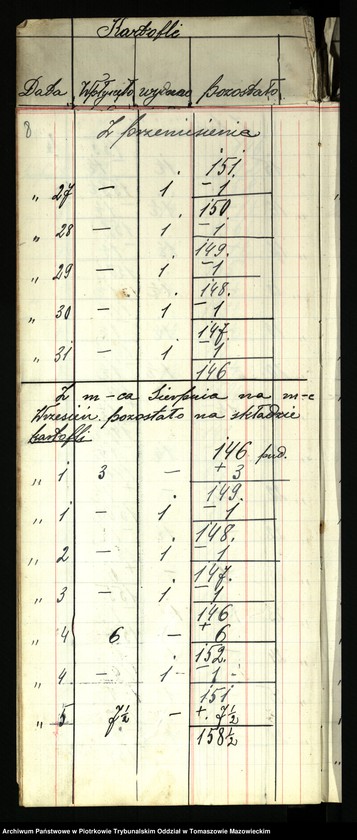 Kartofli
Data Wpłynęło wydano pozostało
8 Z przeniesienia
151.
" 27 — 1 — 1
150.
" 28 — 1 — 1
149.
" 29 — 1 — 1
148.
" 30 — 1 — 1
147.
" 31 — 1 — 1
146
Z m-ca Sierpnia na m-c
Wrzesień pozostało na składzie
kartofli
146 pud.
" 1 3 — + 3
149.
" 1 — 1 — 1
148.
" 2 — 1 — 1
147.
" 3 — 1 — 1
146
" 4 6 — + 6
152.
" 4 — 1 — 1
151
" 5 7½ — +. 7½
158½
Archiwum Państwowe w Piotrkowie Trybunalskim Oddział w Tomaszowie Mazowieckim